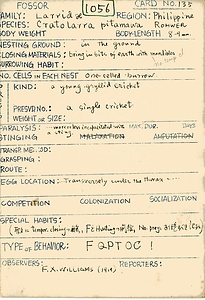 FOSSOR 1056 CARD No. 135
FAMILY: Larridae REGION: Philippine
SPECIES: Cratolarra pitamawa Rohwer
BODY WEIGHT BODY-LENGTH 8-9 mm
NESTING GROUND: in the ground
CLOSING MATERIALS: bring in bits of earth with mandibles
BURROWING HABIT:
NO. CELLS IN EACH NEST One-celled burrow
KIND: a young gryllid cricket
PREY NO.: a single cricket
WEIGHT OR SIZE:
PARALYSIS: MAX. DUR. DAYS
STINGING MALAXATION AMPUTATION
TRANSP. METHOD:
GRASPING:
ROUTE:
EGG LOCATION: Transversely under the thorax
COMPETITION COLONIZATION SOCIALIZATION
SPECIAL HABITS:
TYPE OF BEHAVIOR: F Q P T O C !
OBSERVERS: REPORTERS:
F. X. WILLIAMS (1919)